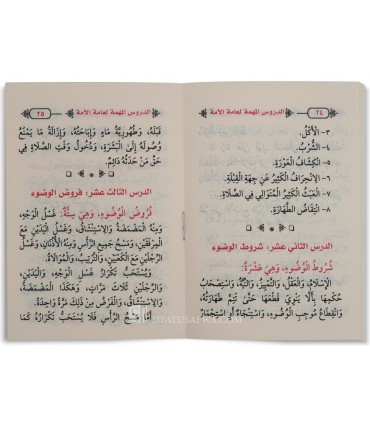 الدروس المهمة لعامة الأمة
٢٤
٣- الأَكْلُ.
٤- الشُّرْبُ.
٥- انْكِشَافُ الْعَوْرَةِ.
٦- الانْحِرَافُ الْكَثِيرُ عَنْ جِهَةِ الْقِبْلَةِ.
٧- الْعَبَثُ الْكَثِيرُ الْمُتَوَالِي فِي الصَّلَاةِ.
٨- انْتِقَاضُ الطَّهَارَةِ.
الدرس الثاني عشر: شروط الوضوء
شُرُوطُ الْوُضُوءِ، وَهِيَ عَشَرَةٌ:
الإِسْلَامُ، وَالْعَقْلُ، وَالتَّمْيِيزُ، وَالنِّيَّةُ، وَاسْتِصْحَابُ
حُكْمِهَا بِأَلَّا يَنْوِيَ قَطْعَهَا حَتَّى تَتِمَّ طَهَارَتُهُ،
وَانْقِطَاعُ مُوجِبِ الْوُضُوءِ، وَاسْتِنْجَاءٌ أَوِ اسْتِجْمَارٌ
الدروس المهمة لعامة الأمة
٢٥
قَبْلَهُ، وَطَهُورِيَّةُ مَاءٍ وَإِبَاحَتُهُ، وَإِزَالَةُ مَا يَمْنَعُ
وُصُولَهُ إِلَى الْبَشَرَةِ، وَدُخُولُ وَقْتِ الصَّلَاةِ فِي
حَقِّ مَنْ حَدَثُهُ دَائِمٌ.
الدرس الثالث عشر: فروض الوضوء
فُرُوضُ الْوُضُوءِ، وَهِيَ سِتَّةٌ: غَسْلُ الْوَجْهِ،
وَمِنْهُ الْمَضْمَضَةُ وَالِاسْتِنْشَاقُ، وَغَسْلُ الْيَدَيْنِ مَعَ
الْمِرْفَقَيْنِ، وَمَسْحُ جَمِيعِ الرَّأْسِ وَمِنْهُ الأُذُنَانِ، وَغَسْلُ
الرِّجْلَيْنِ مَعَ الْكَعْبَيْنِ، وَالتَّرْتِيبُ، وَالْمُوَالَاةُ.
وَيُسْتَحَبُّ تَكْرَارُ غَسْلِ الْوَجْهِ، وَالْيَدَيْنِ،
وَالرِّجْلَيْنِ ثَلَاثَ مَرَّاتٍ، وَهَكَذَا الْمَضْمَضَةُ،
وَالِاسْتِنْشَاقُ، وَالْفَرْضُ مِنْ ذَلِكَ مَرَّةٌ وَاحِدَةٌ.
أَمَّا مَسْحُ الرَّأْسِ فَلَا يُسْتَحَبُّ تَكْرَارُهُ كَمَا